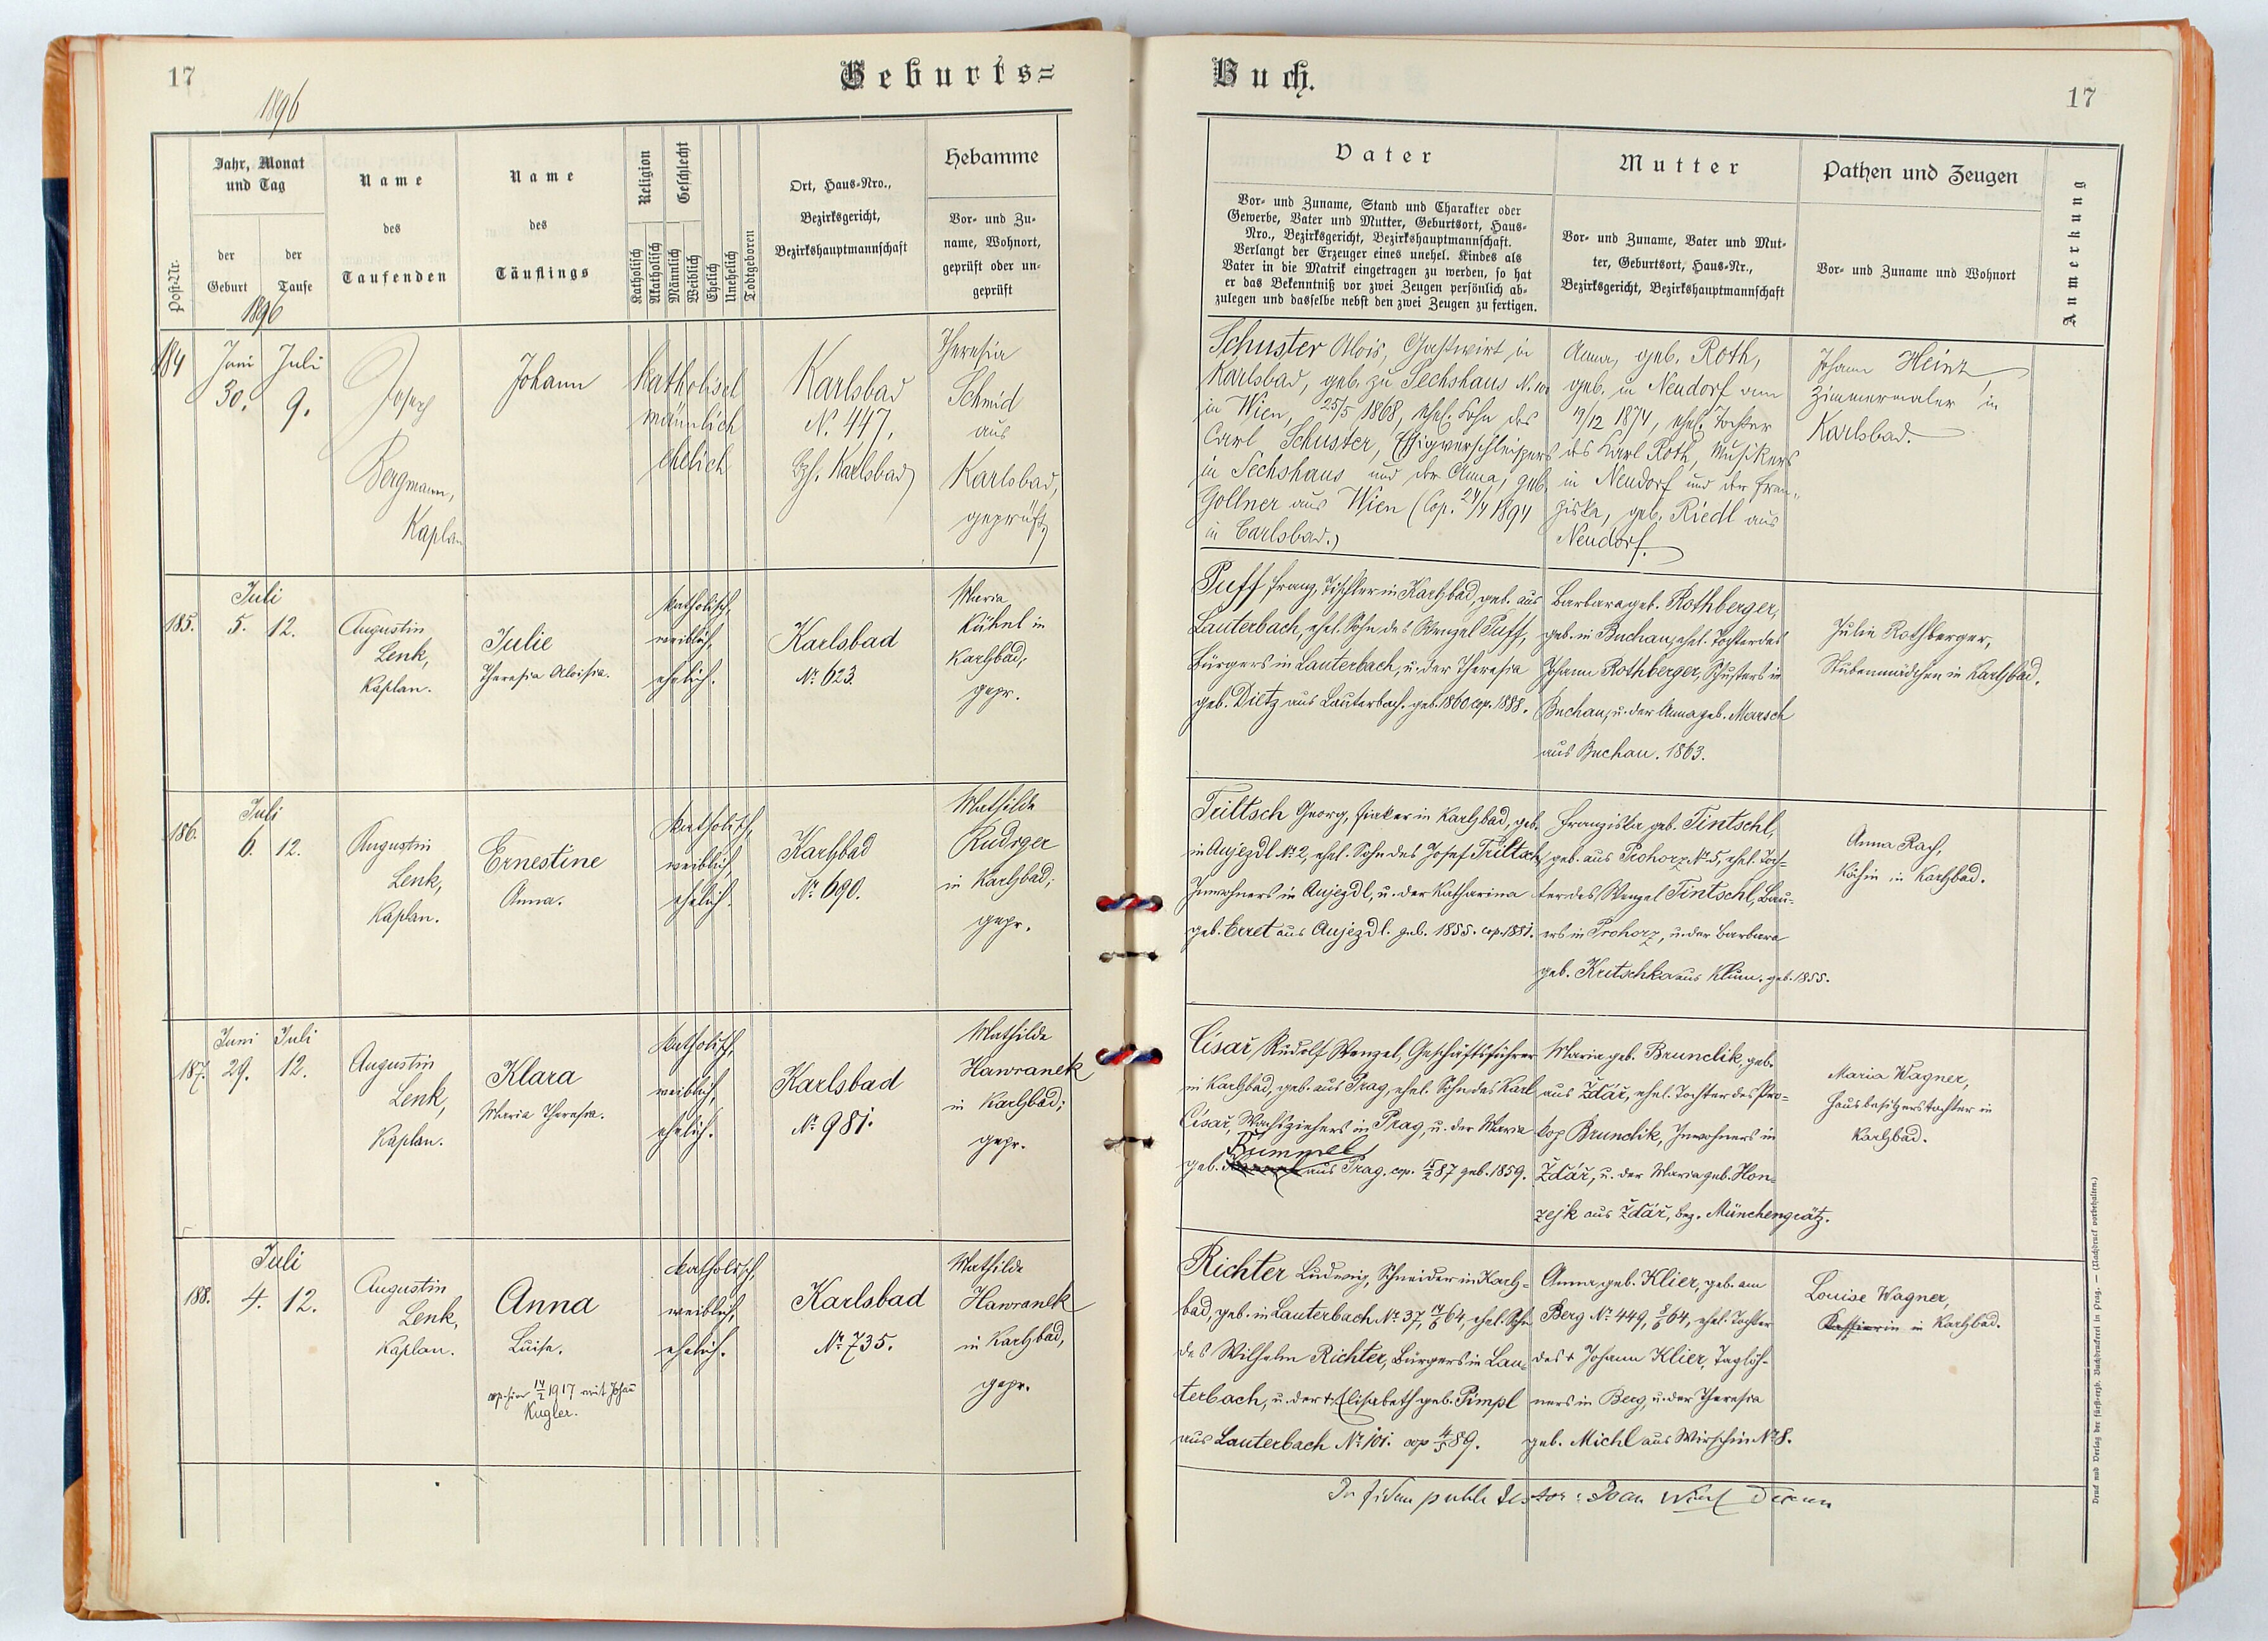 17
Geburts=
1896
Post-Nr.
Jahr, Monat
und Tag
der
Geburt
der
Taufe
1896
Name
des
Taufenden
Name
des
Täuflings
Religion
Katholisch
Akatholisch
Geschlecht
Männlich
Weiblich
Ehelich
Unehelich
Todtgeboren
Ort, Haus-Nro.,
Bezirksgericht,
Bezirkshauptmannschaft
Hebamme
Vor- und Zu-
name, Wohnort,
geprüft oder un-
geprüft
184
Juni Juli
30. 9.
Josef
Bergmann,
Kaplan
Johann
katholisch
männlich
ehelich
Karlsbad
N. 447.
Bzh. Karlsbad
Theresia
Schmid
aus
Karlsbad,
geprüft
185.
Juli
5. 12.
Augustin
Lenk,
Kaplan.
Julie
Theresia Aloisia.
katholisch,
weiblich,
ehelich.
Karlsbad
Nº 623.
Maria
Kühnl in
Karlsbad,
gepr.
186.
Juli
6. 12.
Augustin
Lenk,
Kaplan.
Ernestine
Anna.
katholisch,
weiblich,
ehelich.
Karlsbad
Nº 690.
Mathilde
Rudrger
in Karlsbad;
gepr.
187.
Juni Juli
29. 12.
Augustin
Lenk,
Kaplan.
Klara
Maria Theresia.
katholisch,
weiblich,
ehelich.
Karlsbad
Nº 981.
Mathilde
Hawranek
in Karlsbad;
gepr.
188.
Juli
4. 12.
Augustin
Lenk,
Kaplan.
Anna
Luise.
cop. hier 14/2 1917 mit Johann
Kugler.
katholisch,
weiblich,
ehelich.
Karlsbad
Nº 735.
Mathilde
Hawranek
in Karlsbad,
gepr.
Buch.
17
Vater
Vor- und Zuname, Stand und Charakter oder
Gewerbe, Vater und Mutter, Geburtsort, Haus-
Nro., Bezirksgericht, Bezirkshauptmannschaft.
Verlangt der Erzeuger eines unehel. Kindes als
Vater in die Matrik eingetragen zu werden, so hat
er das Bekenntniß vor zwei Zeugen persönlich ab-
zulegen und dasselbe nebst den zwei Zeugen zu fertigen.
Mutter
Vor- und Zuname, Vater und Mut-
ter, Geburtsort, Haus-Nr.,
Bezirksgericht, Bezirkshauptmannschaft
Pathen und Zeugen
Vor- und Zuname und Wohnort
Anmerkung
Schuster Alois, Gastwirt in
Karlsbad, geb. zu Sechshaus N.
in Wien, 25/5 1868, ehel. Sohn des
Carl Schuster, Essigverschleissers
in Sechshaus und der Anna, geb.
Gollner aus Wien (Cop. 24/4 1894
in Carlsbad.)
Anna, geb. Roth,
geb. in Neudorf am
/12 1874, ehel. Tochter
des Karl Roth, Musikers
in Neudorf und der Fran-
ziska, geb. Riedl aus
Neudorf.
Johann Heinz,
Zimmermaler in
Karlsbad.
Puff Franz, Tischler in Karlsbad, geb. aus
Lauterbach, ehel. Sohn des Wenzel Puff,
Bürgers in Lauterbach, u. der Theresia
geb. Dietz aus Lauterbach. geb. 1860 cop. 1888.
Barbara geb. Rothberger,
geb. in Buchau, ehel. Tochter des
Johann Rothberger, Schusters in
Buchau, u. der Anna geb. Marsch
aus Buchau. 1863.
Julie Rothberger,
Stubenmädchen in Karlsbad.
Triltsch Georg, Fiaker in Karlsbad, geb.
in Aujezdl Nº 2, ehel. Sohn des Josef Triltsch,
Inwohners in Aujezdl, u. der Katharina
geb. Erret aus Aujezdl. geb. 1855. cop. 1881.
Franziska geb. Tintschl,
geb. aus Prohorz Nº 5, ehel. Toch=
ter des Wenzel Tintschl, Bau-
ers in Prohorz, u. der Barbara
geb. Kretschka aus Klum. geb. 1855.
Anna Rach,
Köchin in Karlsbad.
Císař Rudolf Wenzel, Geschäftsführer
in Karlsbad, geb. aus Prag, ehel. Sohn des Karl
Císař, Wachsziehers in Prag, u. der Maria
Rummel
geb. aus Prag. cop. 15/2 87 geb. 1859.
Maria geb. Brunclik, geb.
aus Žďár, ehel. Tochter des Pro=
kop Brunclik, Inwohners in
Žďár, u. der Maria geb. Hon-
zejk aus Žďár, bez. Münchengrätz.
Maria Wagner,
Hausbesitzerstochter in
Karlsbad.
Richter Ludwig, Schneider in Karls=
bad, geb. in Lauterbach Nº 37, 14/6 64, ehel. Sohn
des Wilhelm Richter, Bürgers in Lau-
terbach, u. der + Elisabeth geb. Pimpl
aus Lauterbach Nº 101. cop 4/5 89.
Anna geb. Klier, geb. am
Berg Nº 449, 64, ehel. Tochter
des + Johann Klier, Taglöh-
ners in Berg, u. der Theresia
geb. Michl aus Wirschin Nº 8.
Louise Wagner,
Kassierin in Karlsbad.
Druck und Verlag der fürst-erzb. Buchdruckerei in Prag. — (Nachdruck vorbehalten.)